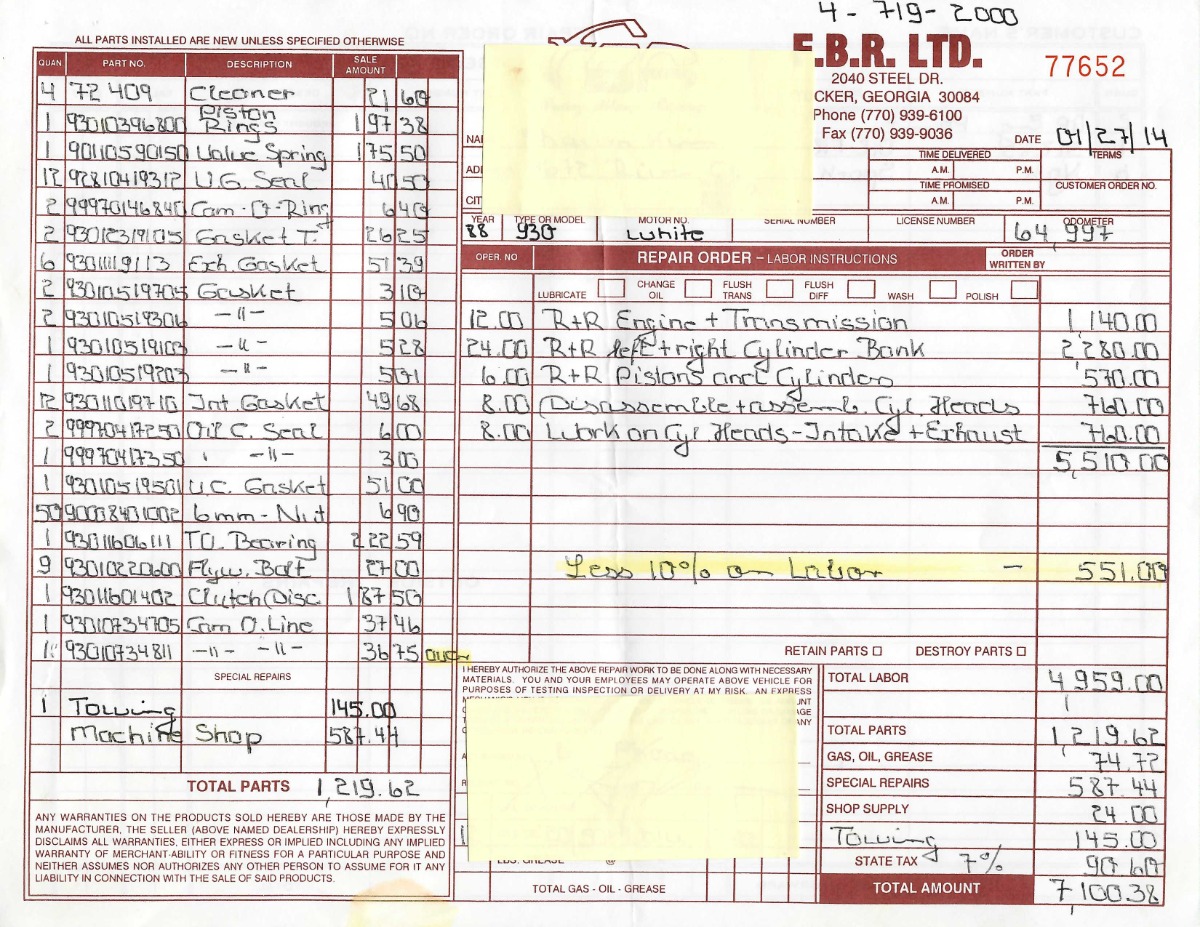 4 - 719 - 2000
ALL PARTS INSTALLED ARE NEW UNLESS SPECIFIED OTHERWISE
QUAN PART NO. DESCRIPTION SALE AMOUNT
4 72409 Cleaner 21 60
1 93010396800 Piston Rings 197 38
1 90110590150 Valve Spring 175 50
12 92810419312 U.G. Seal 40 50
2 99970146840 Cam-O-Ring 6 40
2 93012319105 Gasket T. 26 25
6 93011119113 Exh. Gasket 51 39
2 93010519705 Gasket 3 10
2 93010519306 -"- 5 06
1 93010519103 -"- 5 28
1 93010519203 -"- 5 01
12 93011019710 Int. Gasket 49 68
2 99970417250 Oil C. Seal 6 00
1 99970417350 -"- 3 03
1 93010519501 U.C. Gasket 51 00
50 90008401002 6mm-Nut 6 90
1 93011606111 T.O. Bearing 222 59
9 93010220600 Flyw. Bolt 27 00
1 93011601402 Clutch Disc 187 50
1 93010734705 Cam O. Line 37 46
1 93010734811 -"- -"- 36 75 over
SPECIAL REPAIRS
1 Towing 145.00
Machine Shop 587.44
TOTAL PARTS 1,219.62
ANY WARRANTIES ON THE PRODUCTS SOLD HEREBY ARE THOSE MADE BY THE
MANUFACTURER, THE SELLER (ABOVE NAMED DEALERSHIP) HEREBY EXPRESSLY
DISCLAIMS ALL WARRANTIES, EITHER EXPRESS OR IMPLIED INCLUDING ANY IMPLIED
WARRANTY OF MERCHANT-ABILITY OR FITNESS FOR A PARTICULAR PURPOSE AND
NEITHER ASSUMES NOR AUTHORIZES ANY OTHER PERSON TO ASSUME FOR IT ANY
LIABILITY IN CONNECTION WITH THE SALE OF SAID PRODUCTS.
F.B.R. LTD.
77652
2040 STEEL DR.
CKER, GEORGIA 30084
Phone (770) 939-6100
Fax (770) 939-9036
DATE 01/27/14
TIME DELIVERED TERMS
A.M. P.M.
TIME PROMISED CUSTOMER ORDER NO.
A.M. P.M.
YEAR TYPE OR MODEL MOTOR NO. SERIAL NUMBER LICENSE NUMBER ODOMETER
88 930 White 64,997
OPER. NO REPAIR ORDER – LABOR INSTRUCTIONS ORDER WRITTEN BY
LUBRICATE CHANGE OIL FLUSH TRANS FLUSH DIFF WASH POLISH
12.00 R+R Engine + Transmission 1,140.00
24.00 R+R left + right Cylinder Bank 2,280.00
6.00 R+R Pistons and Cylinders 570.00
8.00 Disassemble + assemb. Cyl. Heads 760.00
8.00 Work on Cyl. Heads - Intake + Exhaust 760.00
5,510.00
Less 10% on Labor - 551.00
RETAIN PARTS DESTROY PARTS
I HEREBY AUTHORIZE THE ABOVE REPAIR WORK TO BE DONE ALONG WITH NECESSARY
MATERIALS. YOU AND YOUR EMPLOYEES MAY OPERATE ABOVE VEHICLE FOR
PURPOSES OF TESTING INSPECTION OR DELIVERY AT MY RISK. AN EXPRESS
TOTAL LABOR 4,959.00
TOTAL PARTS 1,219.62
GAS, OIL, GREASE 74.72
SPECIAL REPAIRS 587.44
SHOP SUPPLY 24.00
Towing 145.00
STATE TAX 7% 90.60
LBS. GREASE @
TOTAL GAS - OIL - GREASE
TOTAL AMOUNT 7,100.38